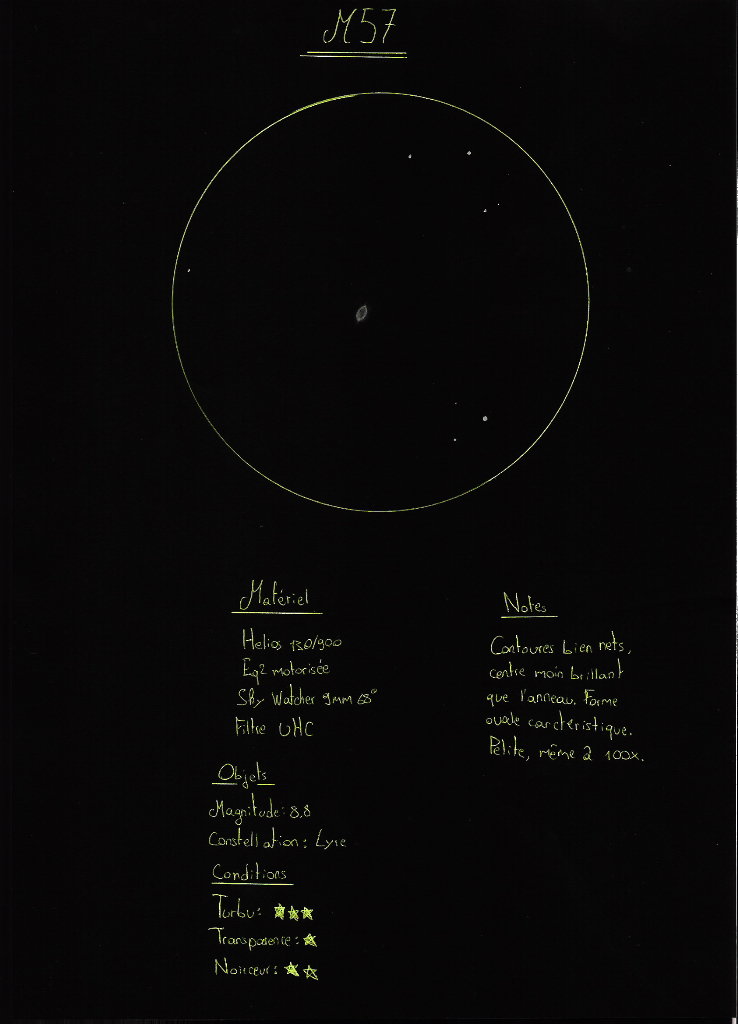 M57
Matériel
Helios 130/900
Eq2 motorisée
Sky Watcher 9mm 68°
Filtre UHC
Objets
Magnitude: 8,8
Constellation: Lyre
Conditions
Turbu:
Transparence:
Noirceur:
Notes
Contoures bien nets,
centre moin brillant
que l'anneau. Forme
ovale carctéristique.
Petite, même à 100x.